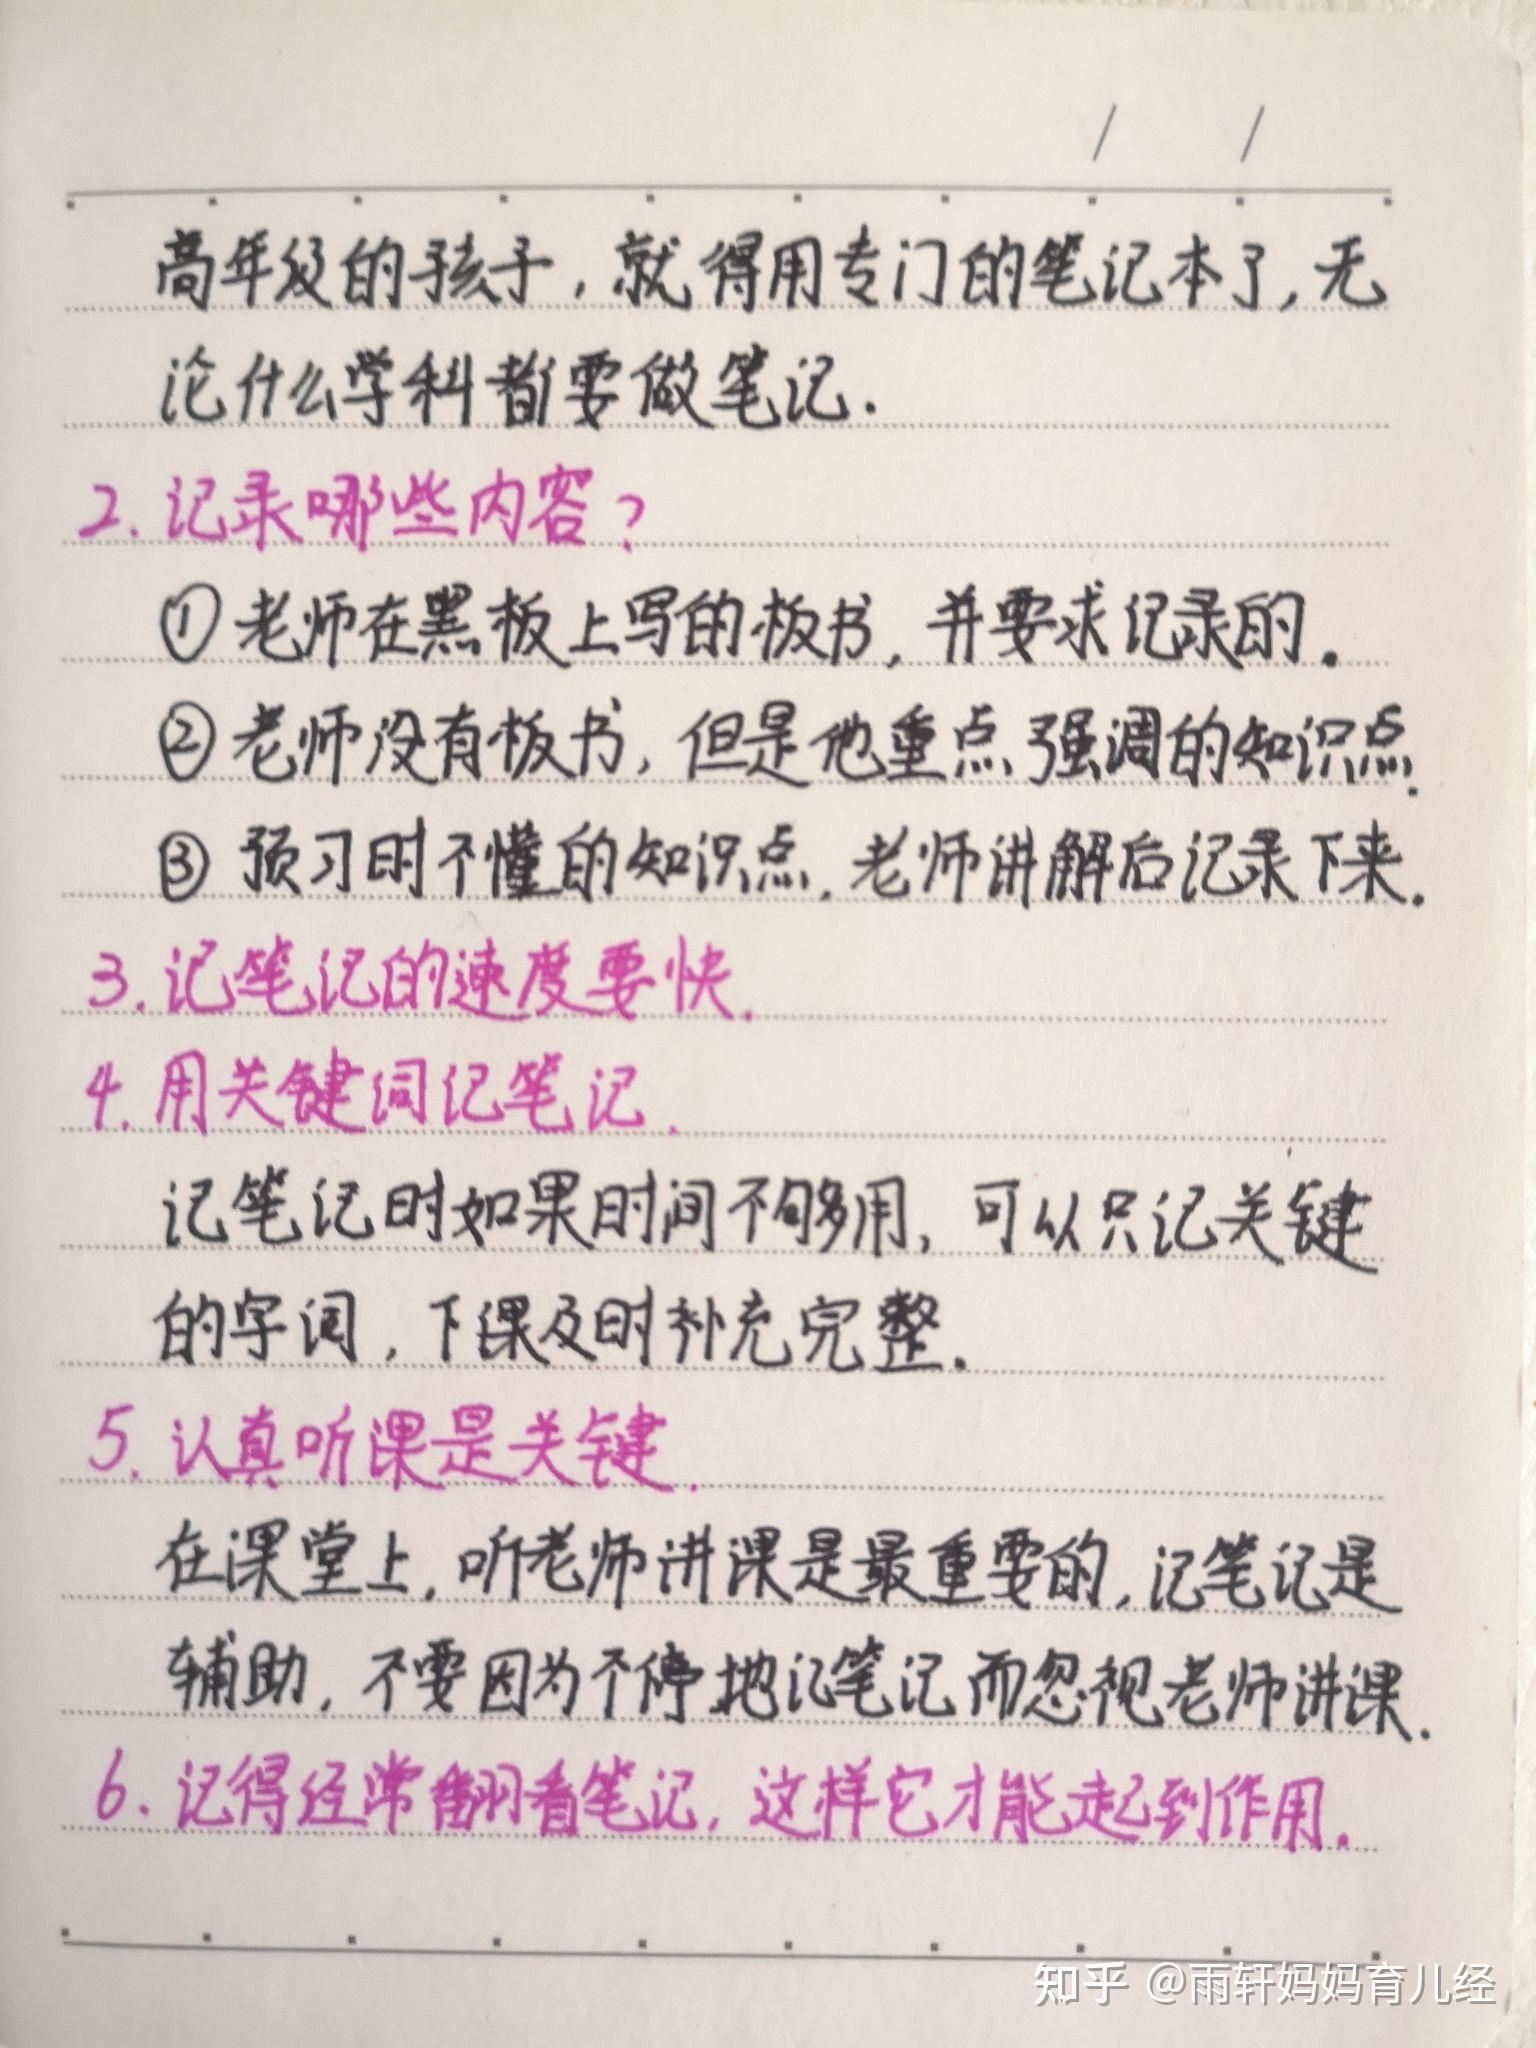 高年级的孩子,就得用专门的笔记本了,无
论什么学科都要做笔记.
2.记录哪些内容?
①老师在黑板上写的板书,并要求记录的.
②老师没有板书,但是他重点强调的知识点.
③预习时不懂的知识点,老师讲解后记录下来.
3.记笔记的速度要快.
4.用关键词记笔记.
记笔记时如果时间不够用,可以只记关键
的字词,下课及时补充完整.
5.认真听课是关键.
在课堂上,听老师讲课是最重要的,记笔记是
辅助,不要因为不停地记笔记而忽视老师讲课.
6.记得经常翻看笔记,这样它才能起到作用.
知乎 @雨轩妈妈育儿经